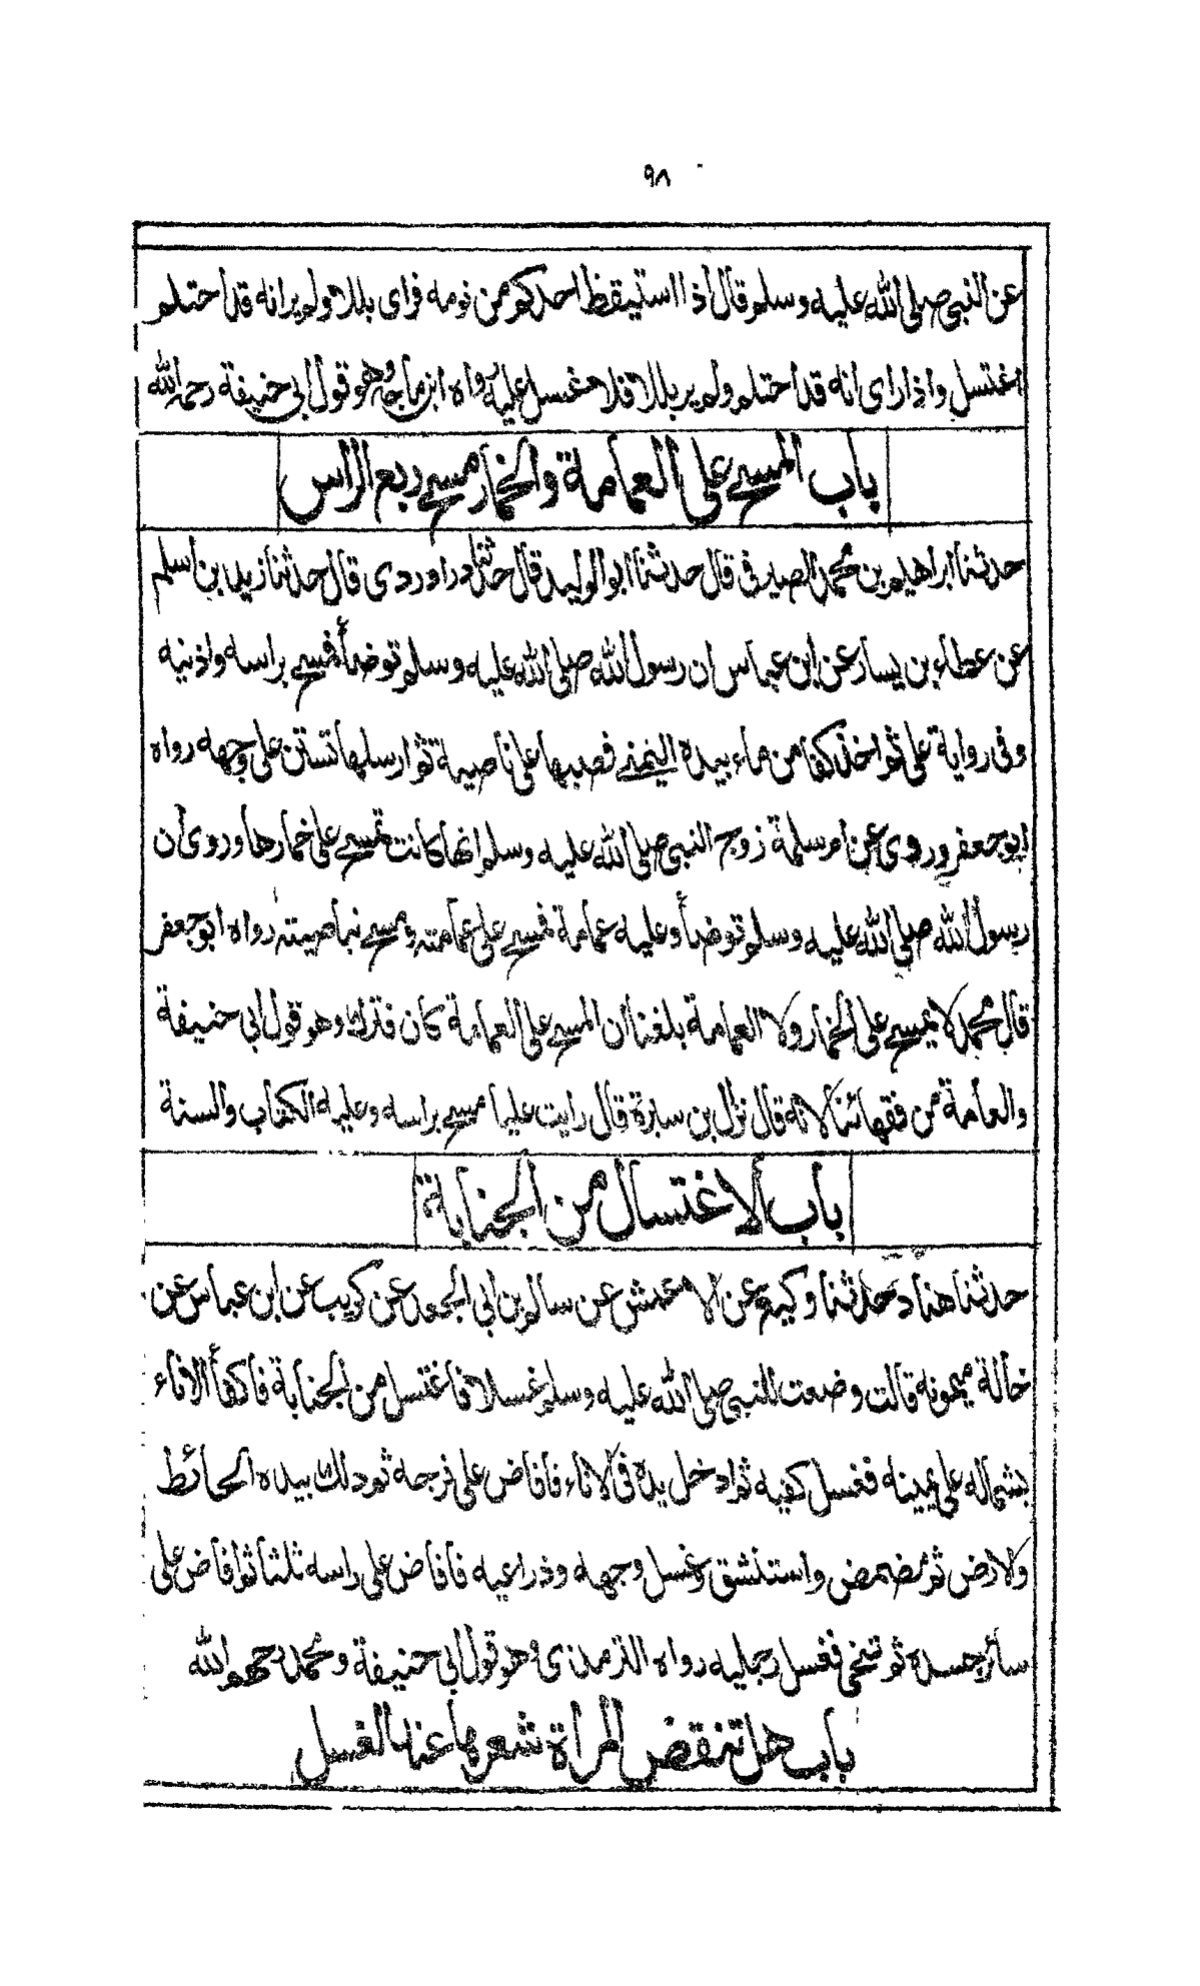 ٩٨
عن النبي صلى الله عليه وسلم قال اذا استيقظ احدكم من نومه فراى بللا ولم ير انه قد احتلم
اغتسل واذا راى انه قد احتلم ولم ير بللا فلا غسل عليه رواه ابن ماجه وهو قول ابي حنيفة رحمه الله
باب المسح على العمامة والخمار مسح ربع الراس
حدثنا ابراهيم بن محمد الصيرفي قال حدثنا ابو الوليد قال حدثنا دراوردى قال حدثنا زيد بن اسلم
عن عطاء بن يسار عن ابن عباس ان رسول الله صلى الله عليه وسلم توضأ فمسح براسه واذنيه
وفى رواية على ثم اخذ كفا من ماء بيده اليمنے فصبها على ناصية ثم ارسلها تستن على وجهه رواه
ابو جعفر وروى عن ام سلمة زوج النبي صلى الله عليه وسلم انها كانت تمسح على خمارها وروى ان
رسول الله صلى الله عليه وسلم توضأ وعليه عمامة فمسح على عمامته ومسح بناصيته رواه ابو جعفر
قال محمد لا يمسح على الخمار ولا العمامة بلغنا ان المسح على العمامة كان فترك وهو قول ابي حنيفة
والعامة من فقهائنا لانه قال نزال بن سبرة قال رايت عليا مسح براسه وعليه الكتاب والسنة
باب الاغتسال من الجنابة
حدثنا هناد حدثنا وكيع عن الاعمش عن سالم بن ابي الجعد عن كريب عن ابن عباس عن
خالة ميمونه قالت وضعت للنبي صلى الله عليه وسلم غسلا فاغتسل من الجنابة فاكفأ الاناء
بشماله على يمينه فغسل كفيه ثم ادخل يده فى الاناء فافاض على فرجه ثم دلك بيده الحائط
والارض ثم مضمض واستنشق وغسل وجهه وذراعيه فافاض على راسه ثلثا ثم افاض على
سائر جسده ثم تنحى فغسل رجليه رواه الترمذى وهو قول ابي حنيفة ومحمد رحمهم الله
باب هل تنقض المراة شعرها عند الغسل